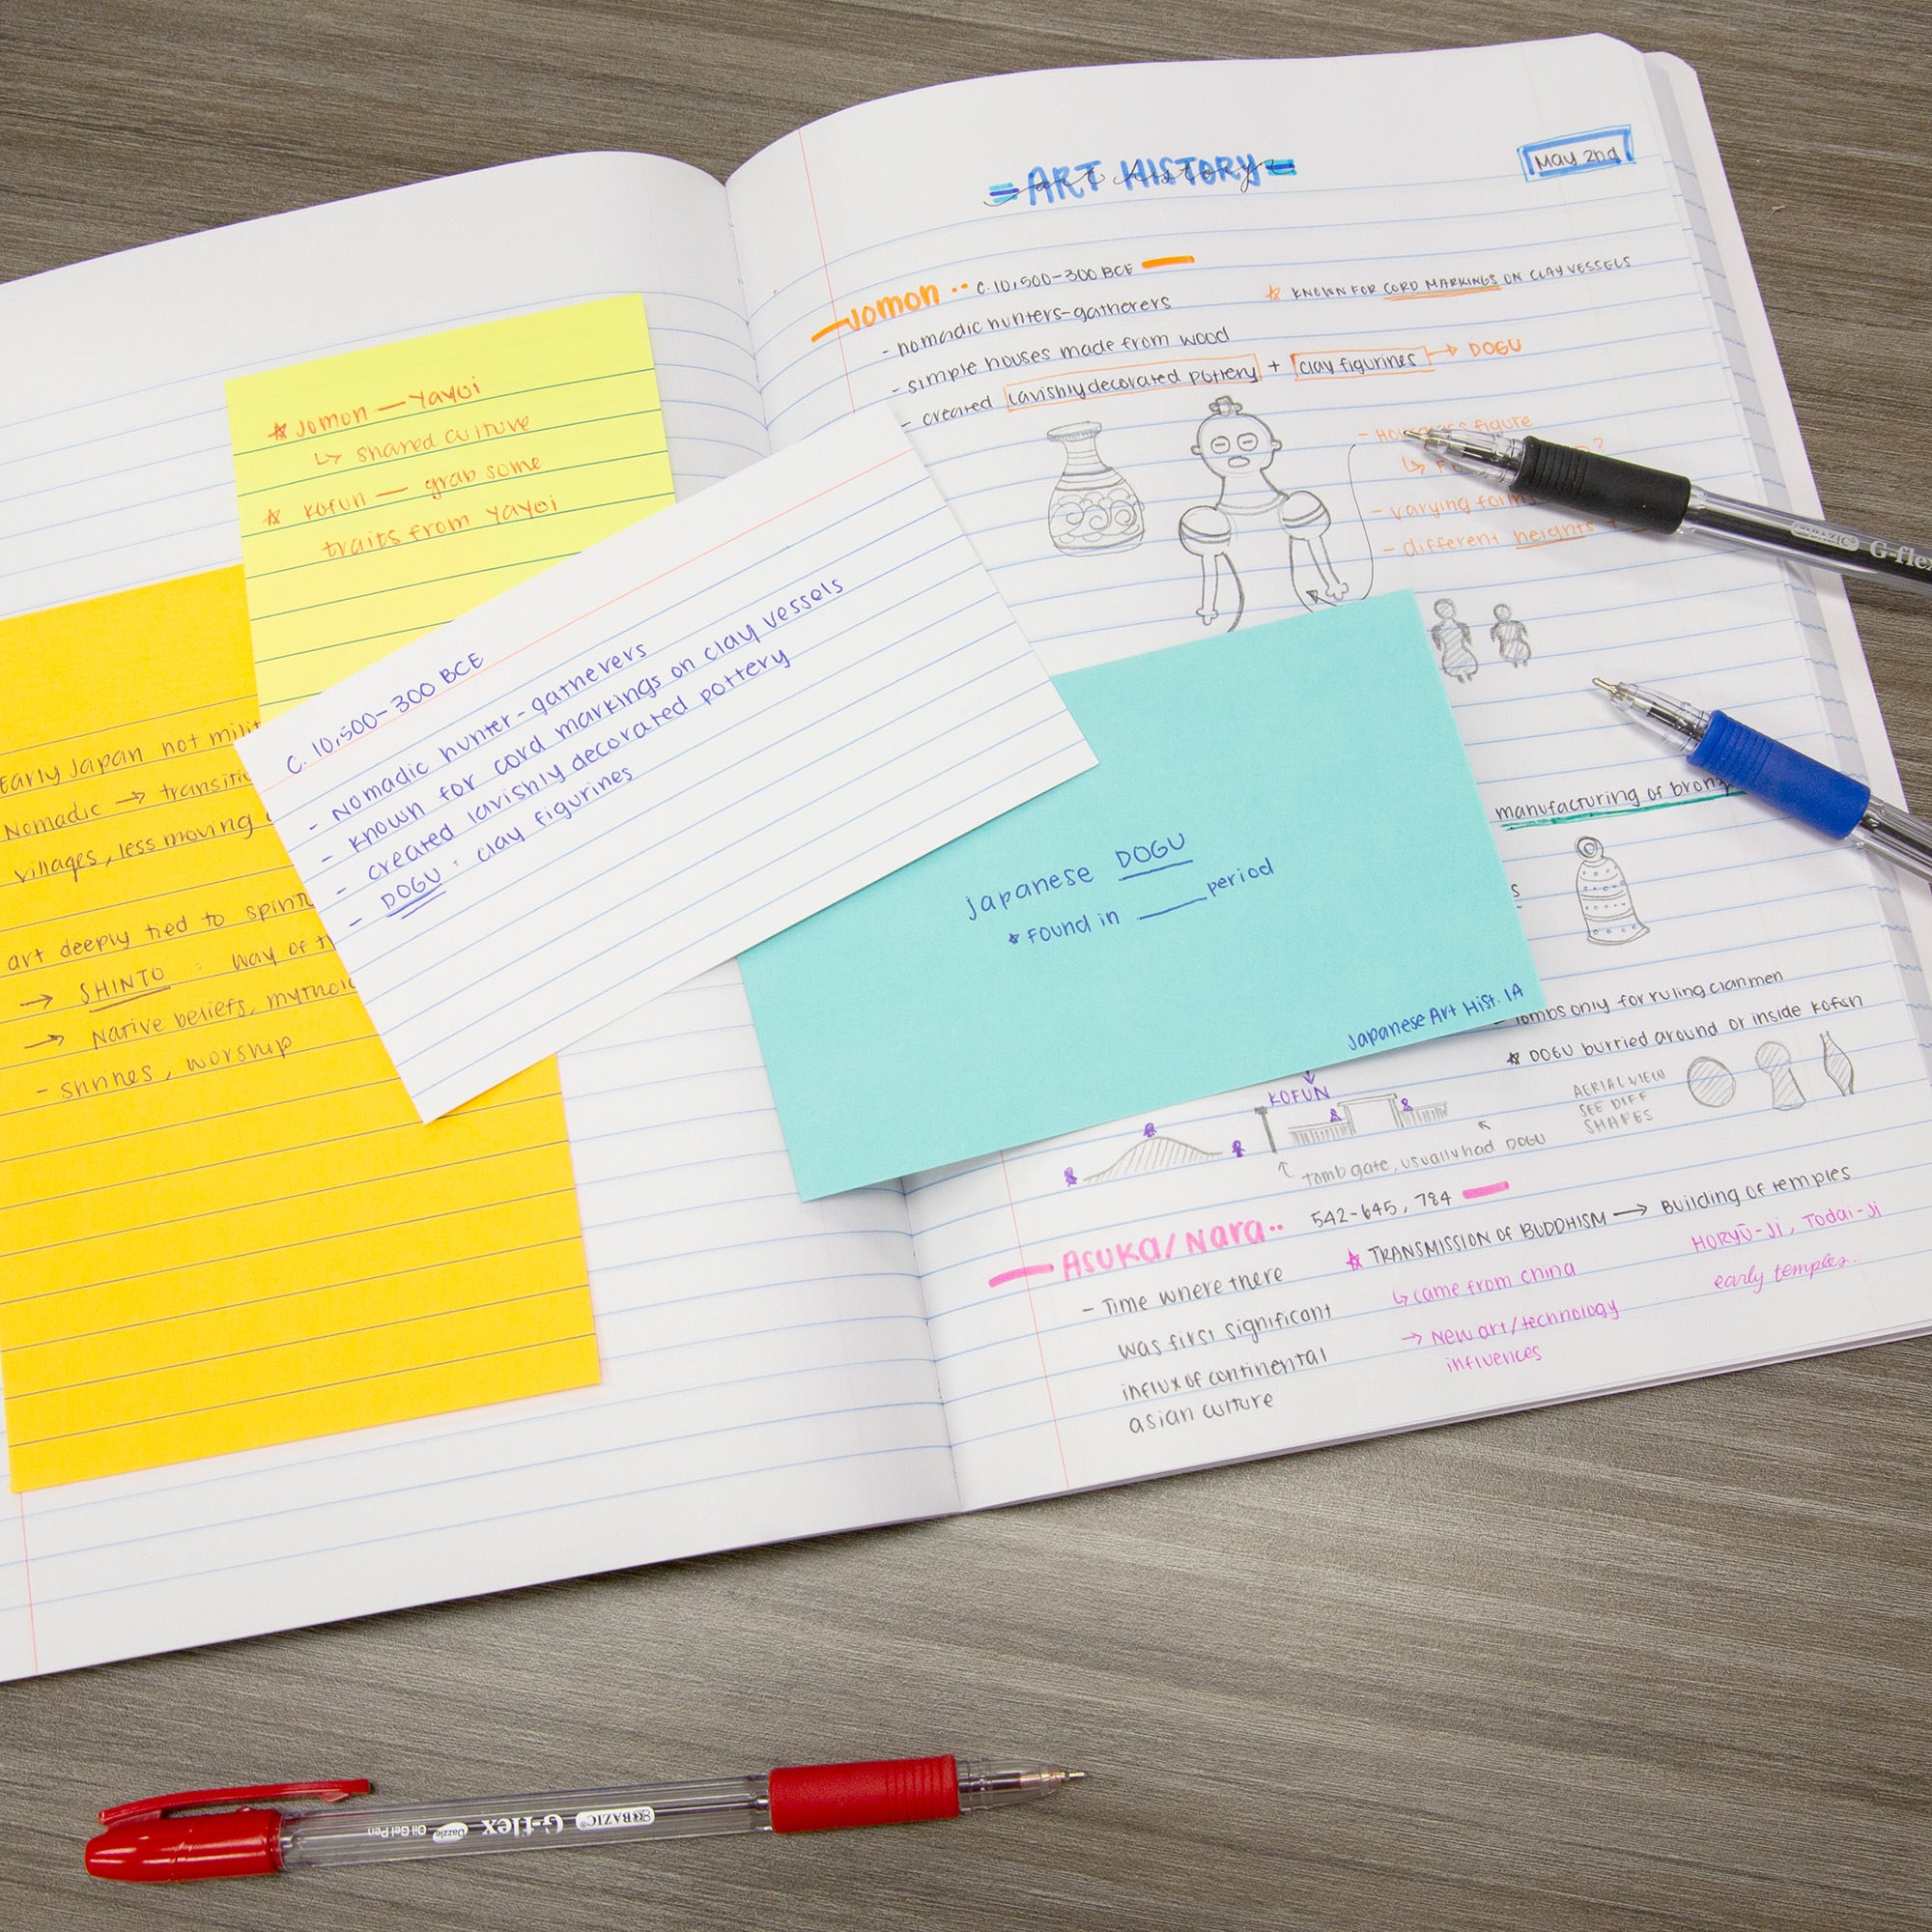 = ART HISTORY =
art history
May 2nd
Jomon •• C. 10,500-300 BCE
- nomadic hunters-gatherers
★ KNOWN FOR CORD MARKINGS ON CLAY VESSELS
- simple houses made from wood
- created lavishly decorated pottery + clay figurines → DOGU
figure
- varying forms
- different heights +
manufacturing of bronze
Tombs only for ruling clanmen
★ DOGU burried around or inside Kofun
AERIAL VIEW
SEE DIFF
SHAPES
KOFUN
tomb gate, usually had DOGU
ASUKA/Nara •• 542-645, 784
- Time where there
was first significant
influx of continental
asian culture
★ TRANSMISSION OF BUDDHISM → Building of temples
↳ came from china
→ New art/technology
influences
HORYŪ-Ji, Todai-Ji
early temples.
☆ Jomon — Yayoi
↳ shared culture
☆ Kofun — grab some
traits from Yayoi
Early Japan not
Nomadic →
villages, less moving
art deeply tied to
→ SHINTO : way of
→ Native beliefs,
- shrines, worship
C. 10,500-300 BCE
- Nomadic hunter-gatherers
- known for cord markings on clay vessels
- created lavishly decorated pottery
- DOGU: clay figurines
Japanese DOGU
★ found in ____ period
Japanese Art Hist. 1A
BAZIC® G-flex
BAZIC® G-flex Dazzle Oil Gel Pen